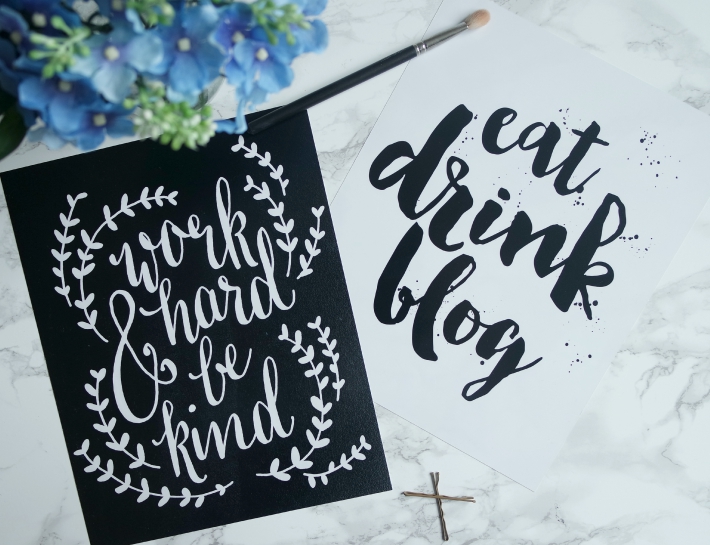 work
hard
& be
kind
eat
drink
blog